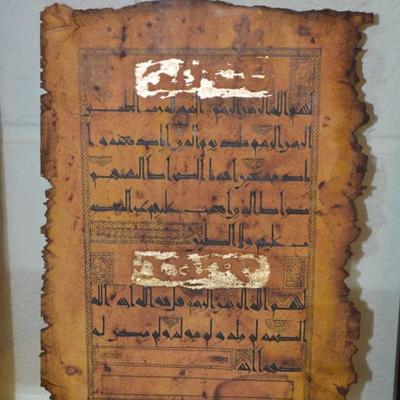 بسم الله الرحمن الرحيم الحمد لله رب العلمين
الرحمن الرحيم ملك يوم الدين اياك نعبد و ا
ياك نستعين اهدنا الصراط المستقيم
صراط الذين انعمت عليهم غير المغضو
ب عليهم ولا الضالين
بسم الله الرحمن الرحيم قل هو الله احد الله
الصمد لم يلد ولم يولد ولم يكن له
كفوا احد